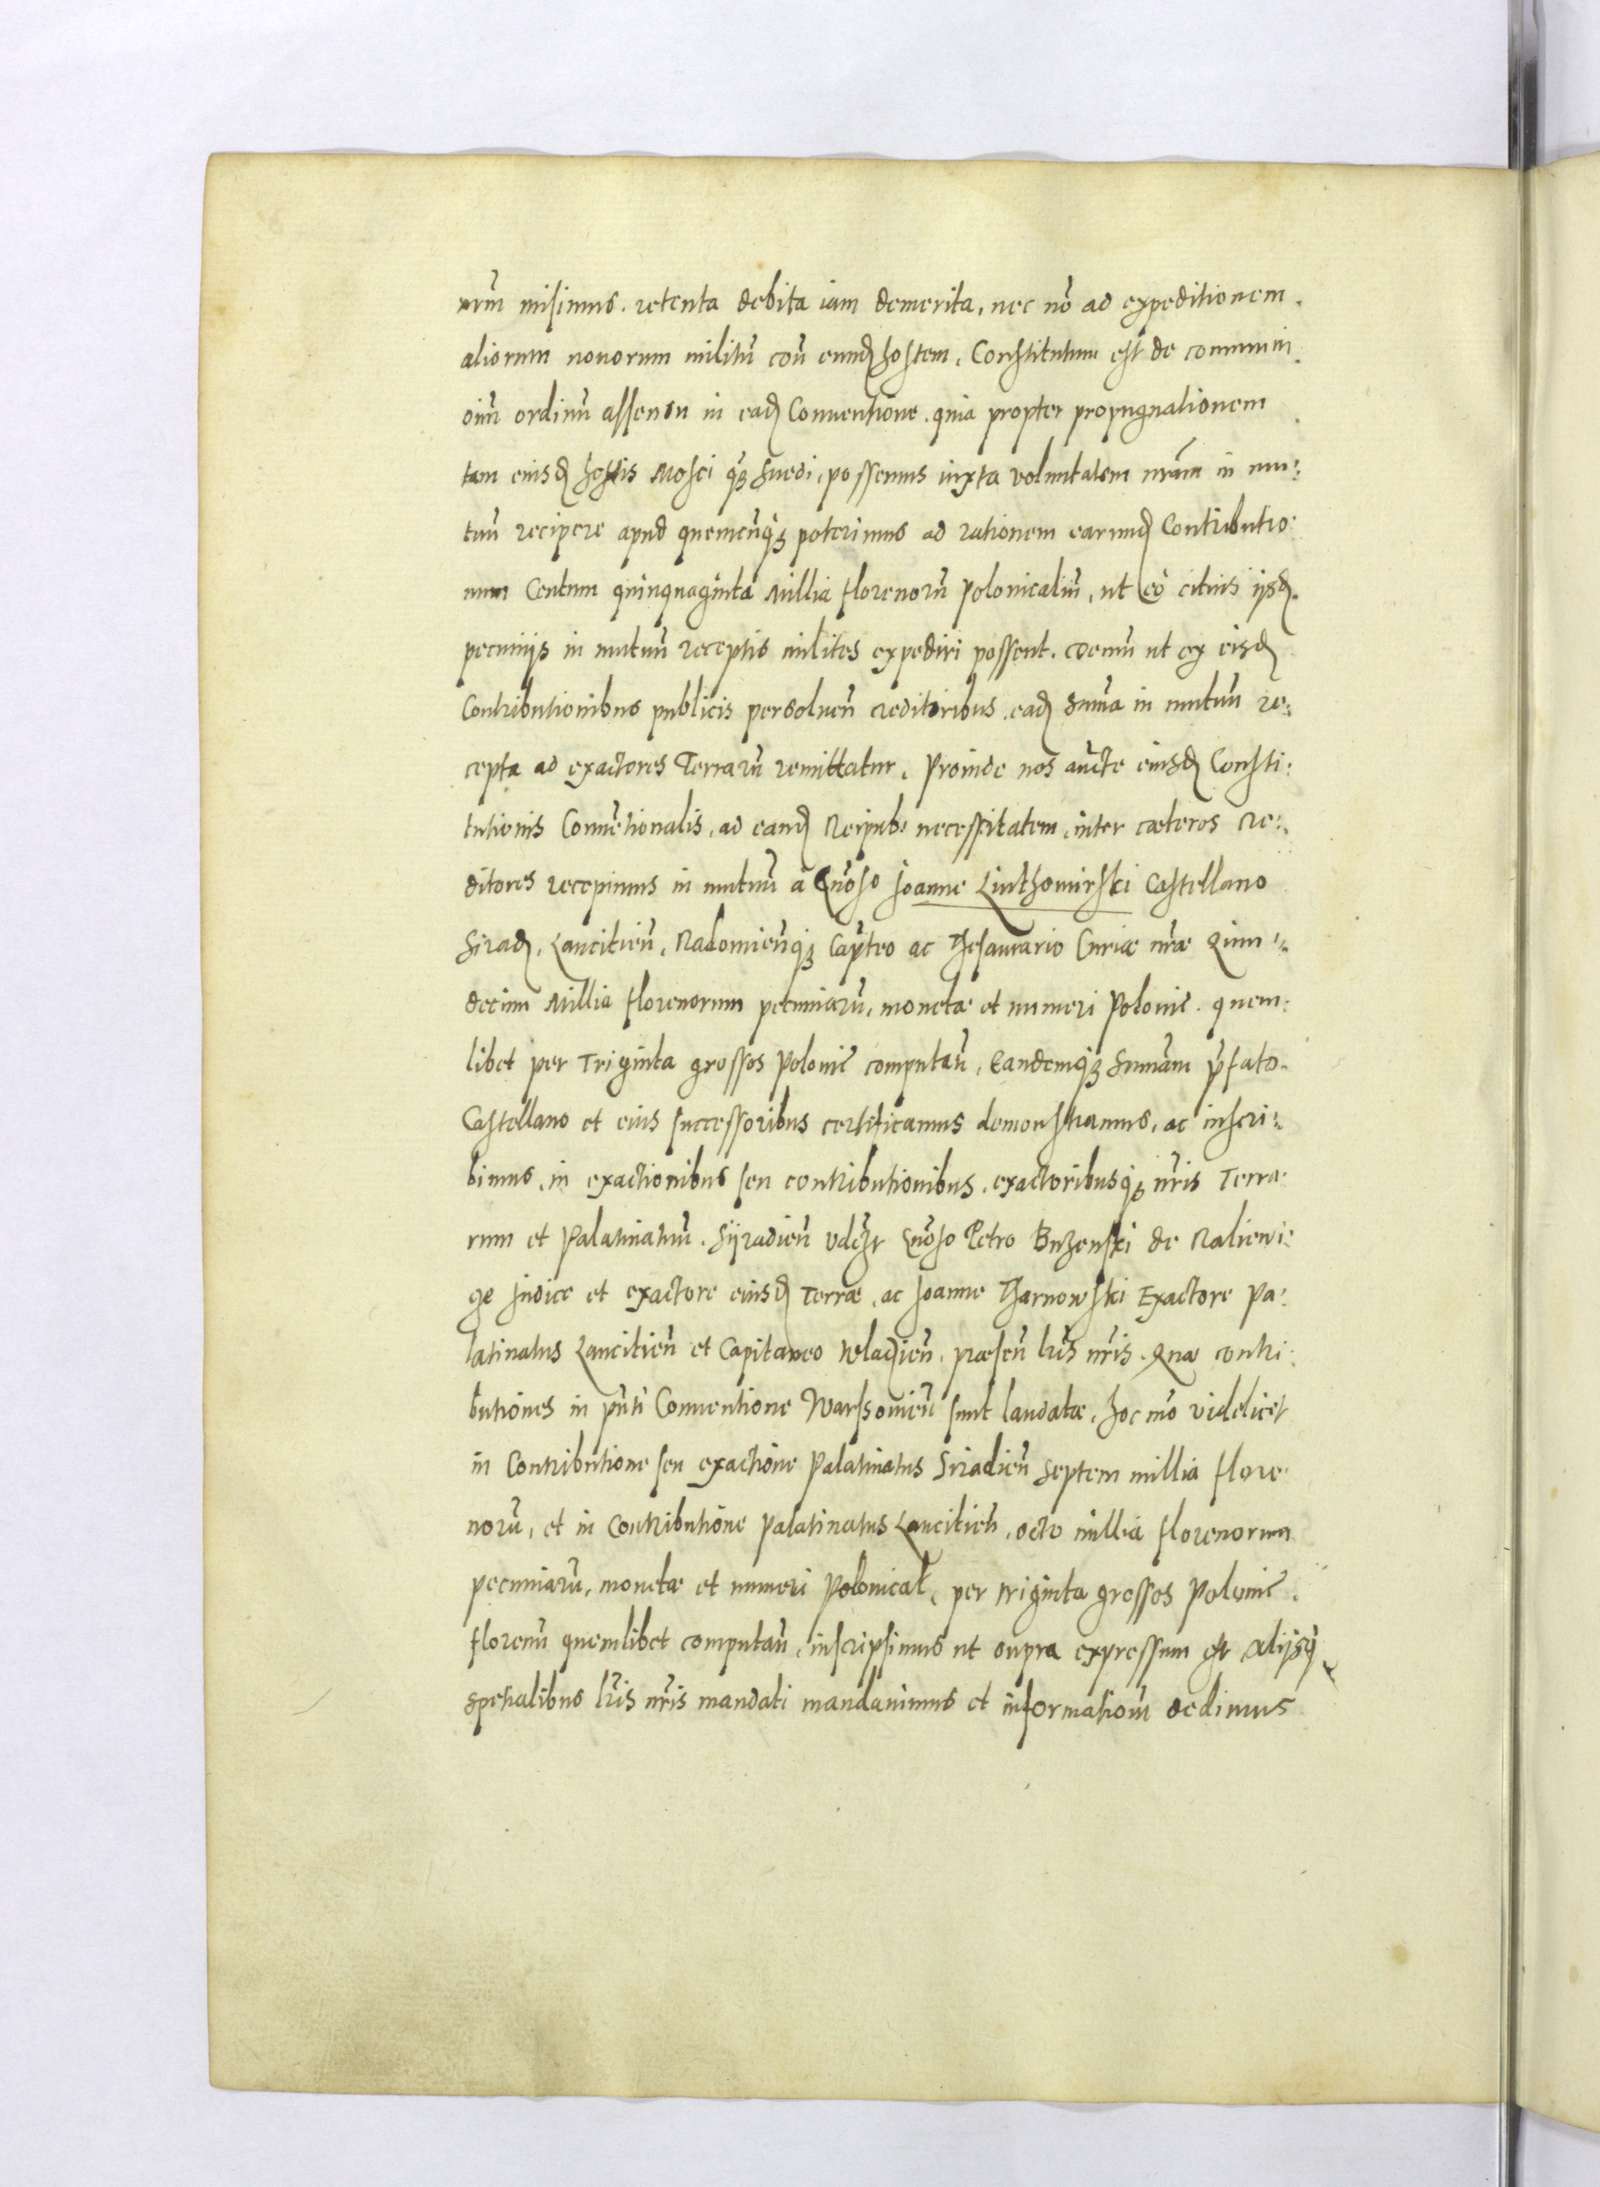 nrm̃ misimus. retenta debita iam demerita, nec nõ ad expeditionem.
aliorum nouorum militũ coñ eund hostem. Constitutum est de communi.
oim̃ ordinũ assensu in ead Conuentione. quia propter propugnationem
tam eiusd hostis Mosci q̃ꝫ Suedi, possemus iuxta voluntatem nr̃am in mu:
tuũ recipere apud quemcũqꝫ poterimus ad rationem earund Contributio:
num Centum quinquaginta Millia florenorũ polonicaliũ, ut eò citius ijsd.
pecunijs in mutuũ receptis milites expediri possent. demũ ut ex eisd
Contributionibus publicis persoluen̄ creditoribus. ead sum̃a in mutuũ re:
cepta ad exactores Terrarũ remittatur. Proinde nos auc̃te eiusd Consti:
tutionis Conuẽtionalis, ad eand Reipub: necessitatem, inter cæteros cre:
ditores recepimus in mutuũ à Gñoso Joanne Luthomirski Castellano
Sirad, Lancicien̄, Radomien̄qꝫ Cap̃teo ac Thesaurario Curiæ nr̃æ Quin:
decim Millia florenorum pecuniarũ, monetæ et numeri Polonic̃. quem:
libet per Triginta grossos Polonic̃ computañ, Eandemqꝫ Sum̃am p̃fato.
Castellano et eius successoribus certificamus demonstramus, ac inscri:
bimus, in exactionibus seu contributionibus. exactoribusqꝫ nr̃is Terra:
rum et Palatinatuũ. Syradien̄ vdꝫt Gñoso Petro Buzenski de Naliewi:
ge Judice et exactore eiusd Terræ, ac Joanne Tharnowski Exactore Pa:
latinatus Lancicien̄ et Capitaneo Kladien̄. præsen̄ lr̃is nr̃is. Quæ contri:
butiones in pñti Conuentione Warsouien̄ sunt laudatæ, hoc mõ videlicet
in Contributione seu exactione Palatinatus Siradien̄ Septem millia flore:
norũ, et in Contributione Palatinatus Lancicien̄. octo millia florenorum
pecuniarũ, monetæ et numeri Polonical, per triginta grossos Polonic̃.
florenũ quemlibet computañ, inscripsimus ut supra expressum est Alijsq
spetialibus lr̃is nr̃is mandati mandauimus et informationẽ dedimus